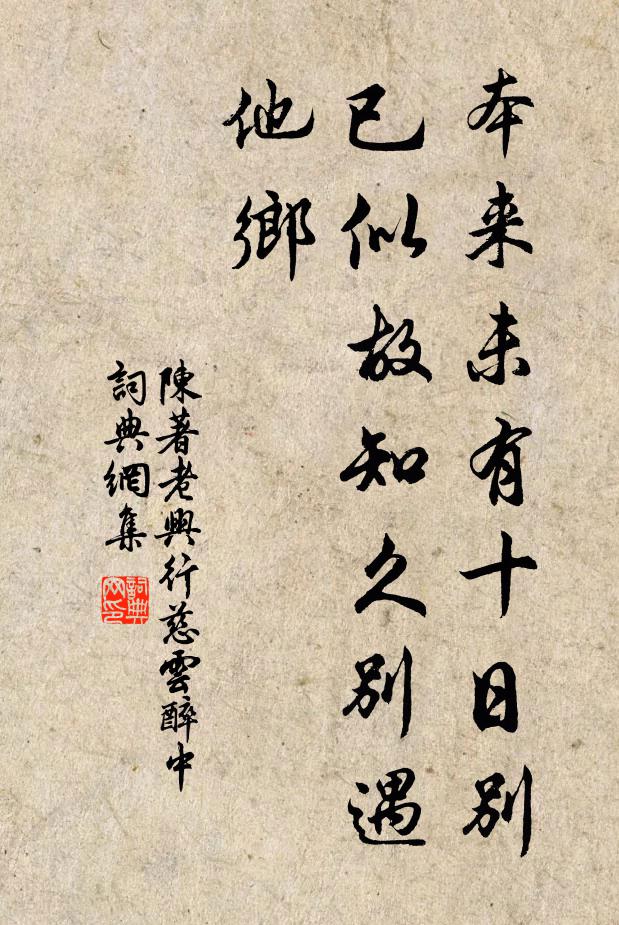 本来未有十日别
已似故知久别遇
他鄉
陳著老興行慈雲醉中
詞典網集
詞典